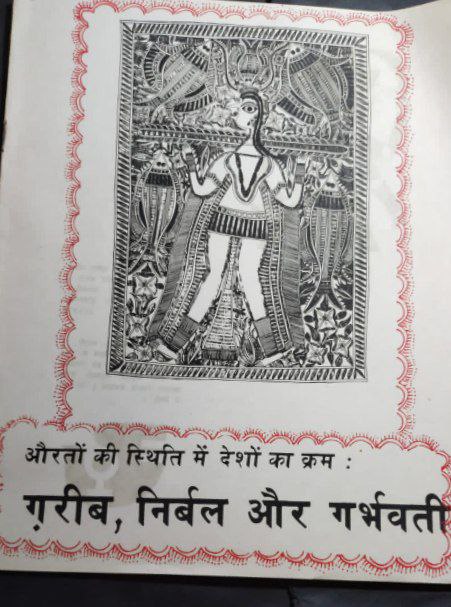 औरतों की स्थिति में देशों का क्रम :
ग़रीब, निर्बल और गर्भवती